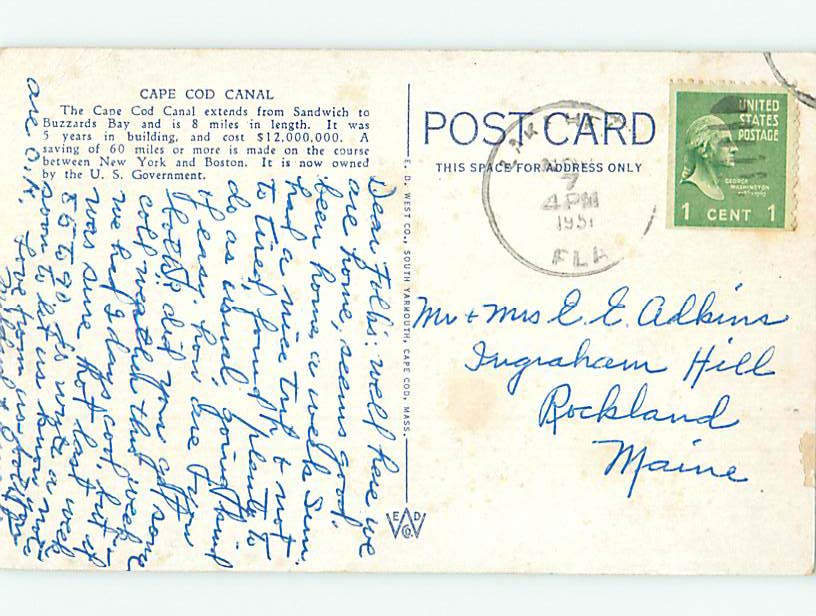 CAPE COD CANAL
The Cape Cod Canal extends from Sandwich to
Buzzards Bay and is 8 miles in length. It was
5 years in building, and cost $12,000,000. A
saving of 60 miles or more is made on the course
between New York and Boston. It is now owned
by the U. S. Government.
Dear Folks: well here we
are home, seems good,
been home a week Sun.
had a nice trip & not
to tired, found plenty to
do as usual, going kind
of easy, how are you
folks, did you get some
cold weather this week
we had 2 days cool, but it
was sure hot last week
85 to 90 do write a note
soon to let us know you
are O.K. Love from us both
E. D. WEST CO., SOUTH YARMOUTH, CAPE COD, MASS.
E D
W
Co
POST CARD
THIS SPACE FOR ADDRESS ONLY
NOV
7
4 PM
1951
FLA
UNITED
STATES
POSTAGE
GEORGE
WASHINGTON
1 CENT 1
Mr & Mrs E. E. Adkins
Ingraham Hill
Rockland
Maine